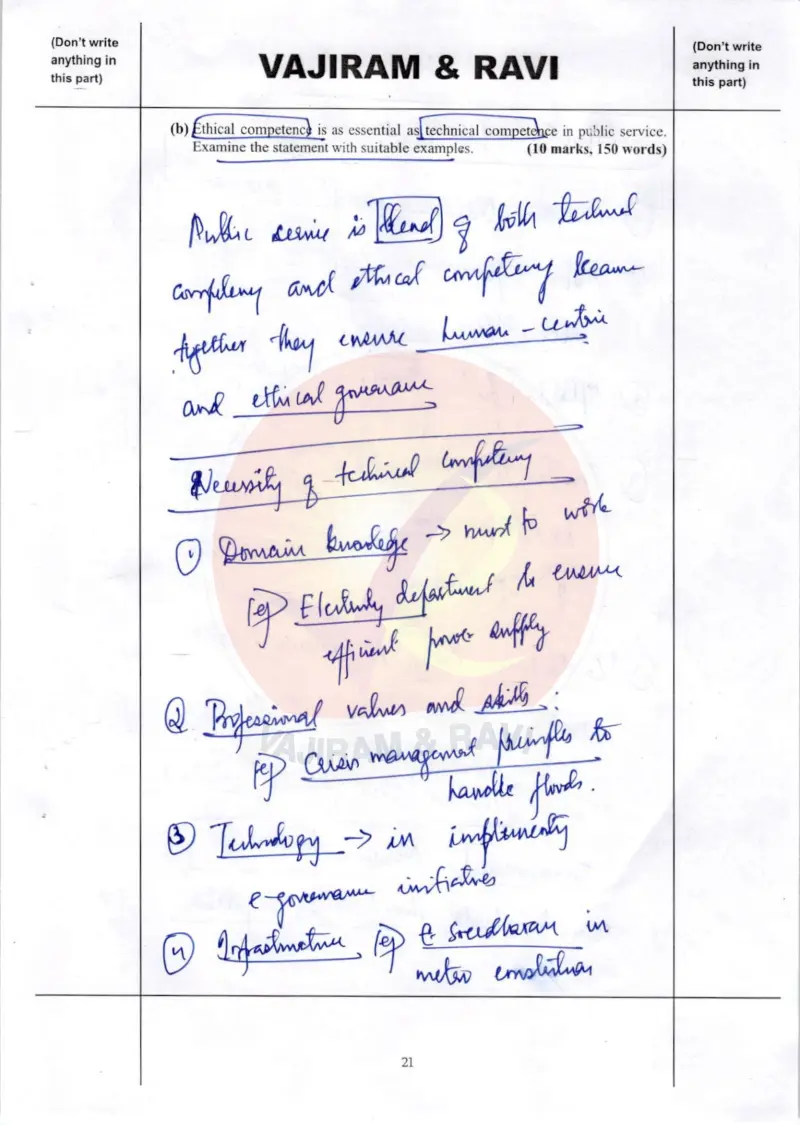 (Don't write
anything in
this part)
VAJIRAM & RAVI
(Don't write
anything in
this part)
(b) Ethical competence is as essential as technical competence in public service.
Examine the statement with suitable examples. (10 marks, 150 words)
Public service is blend of both technical
competency and ethical competency because
together they ensure human-centric
and ethical governance
Necessity of technical competency
① Domain knowledge → must to work
eg) Electricity department to ensure
efficient power supply
② Professional values and skills :
eg) Crisis management principles to
handle floods.
③ Technology → in implementing
e-governance initiatives
④ Infrastructure eg) E Sreedharan in
metro construction
VAJIRAM & RAVI
21